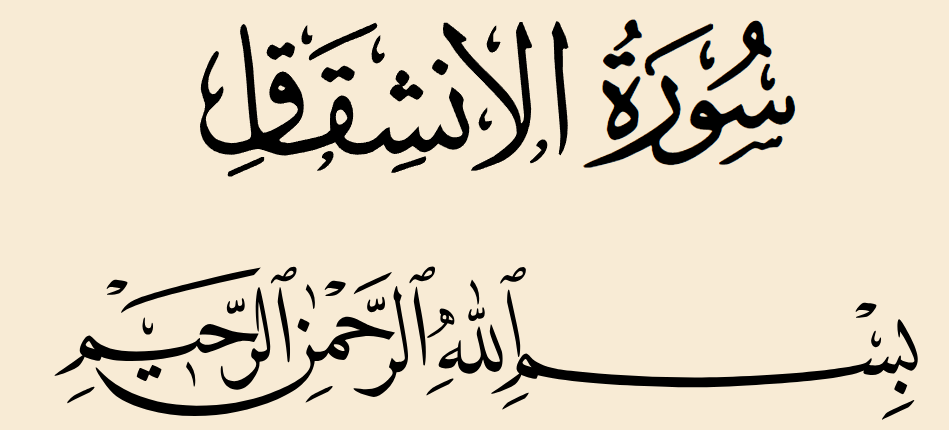 سُورَةُ الانشِقَاقِ
بِسْمِ ٱللَّهِ ٱلرَّحْمَٰنِ ٱلرَّحِيمِ